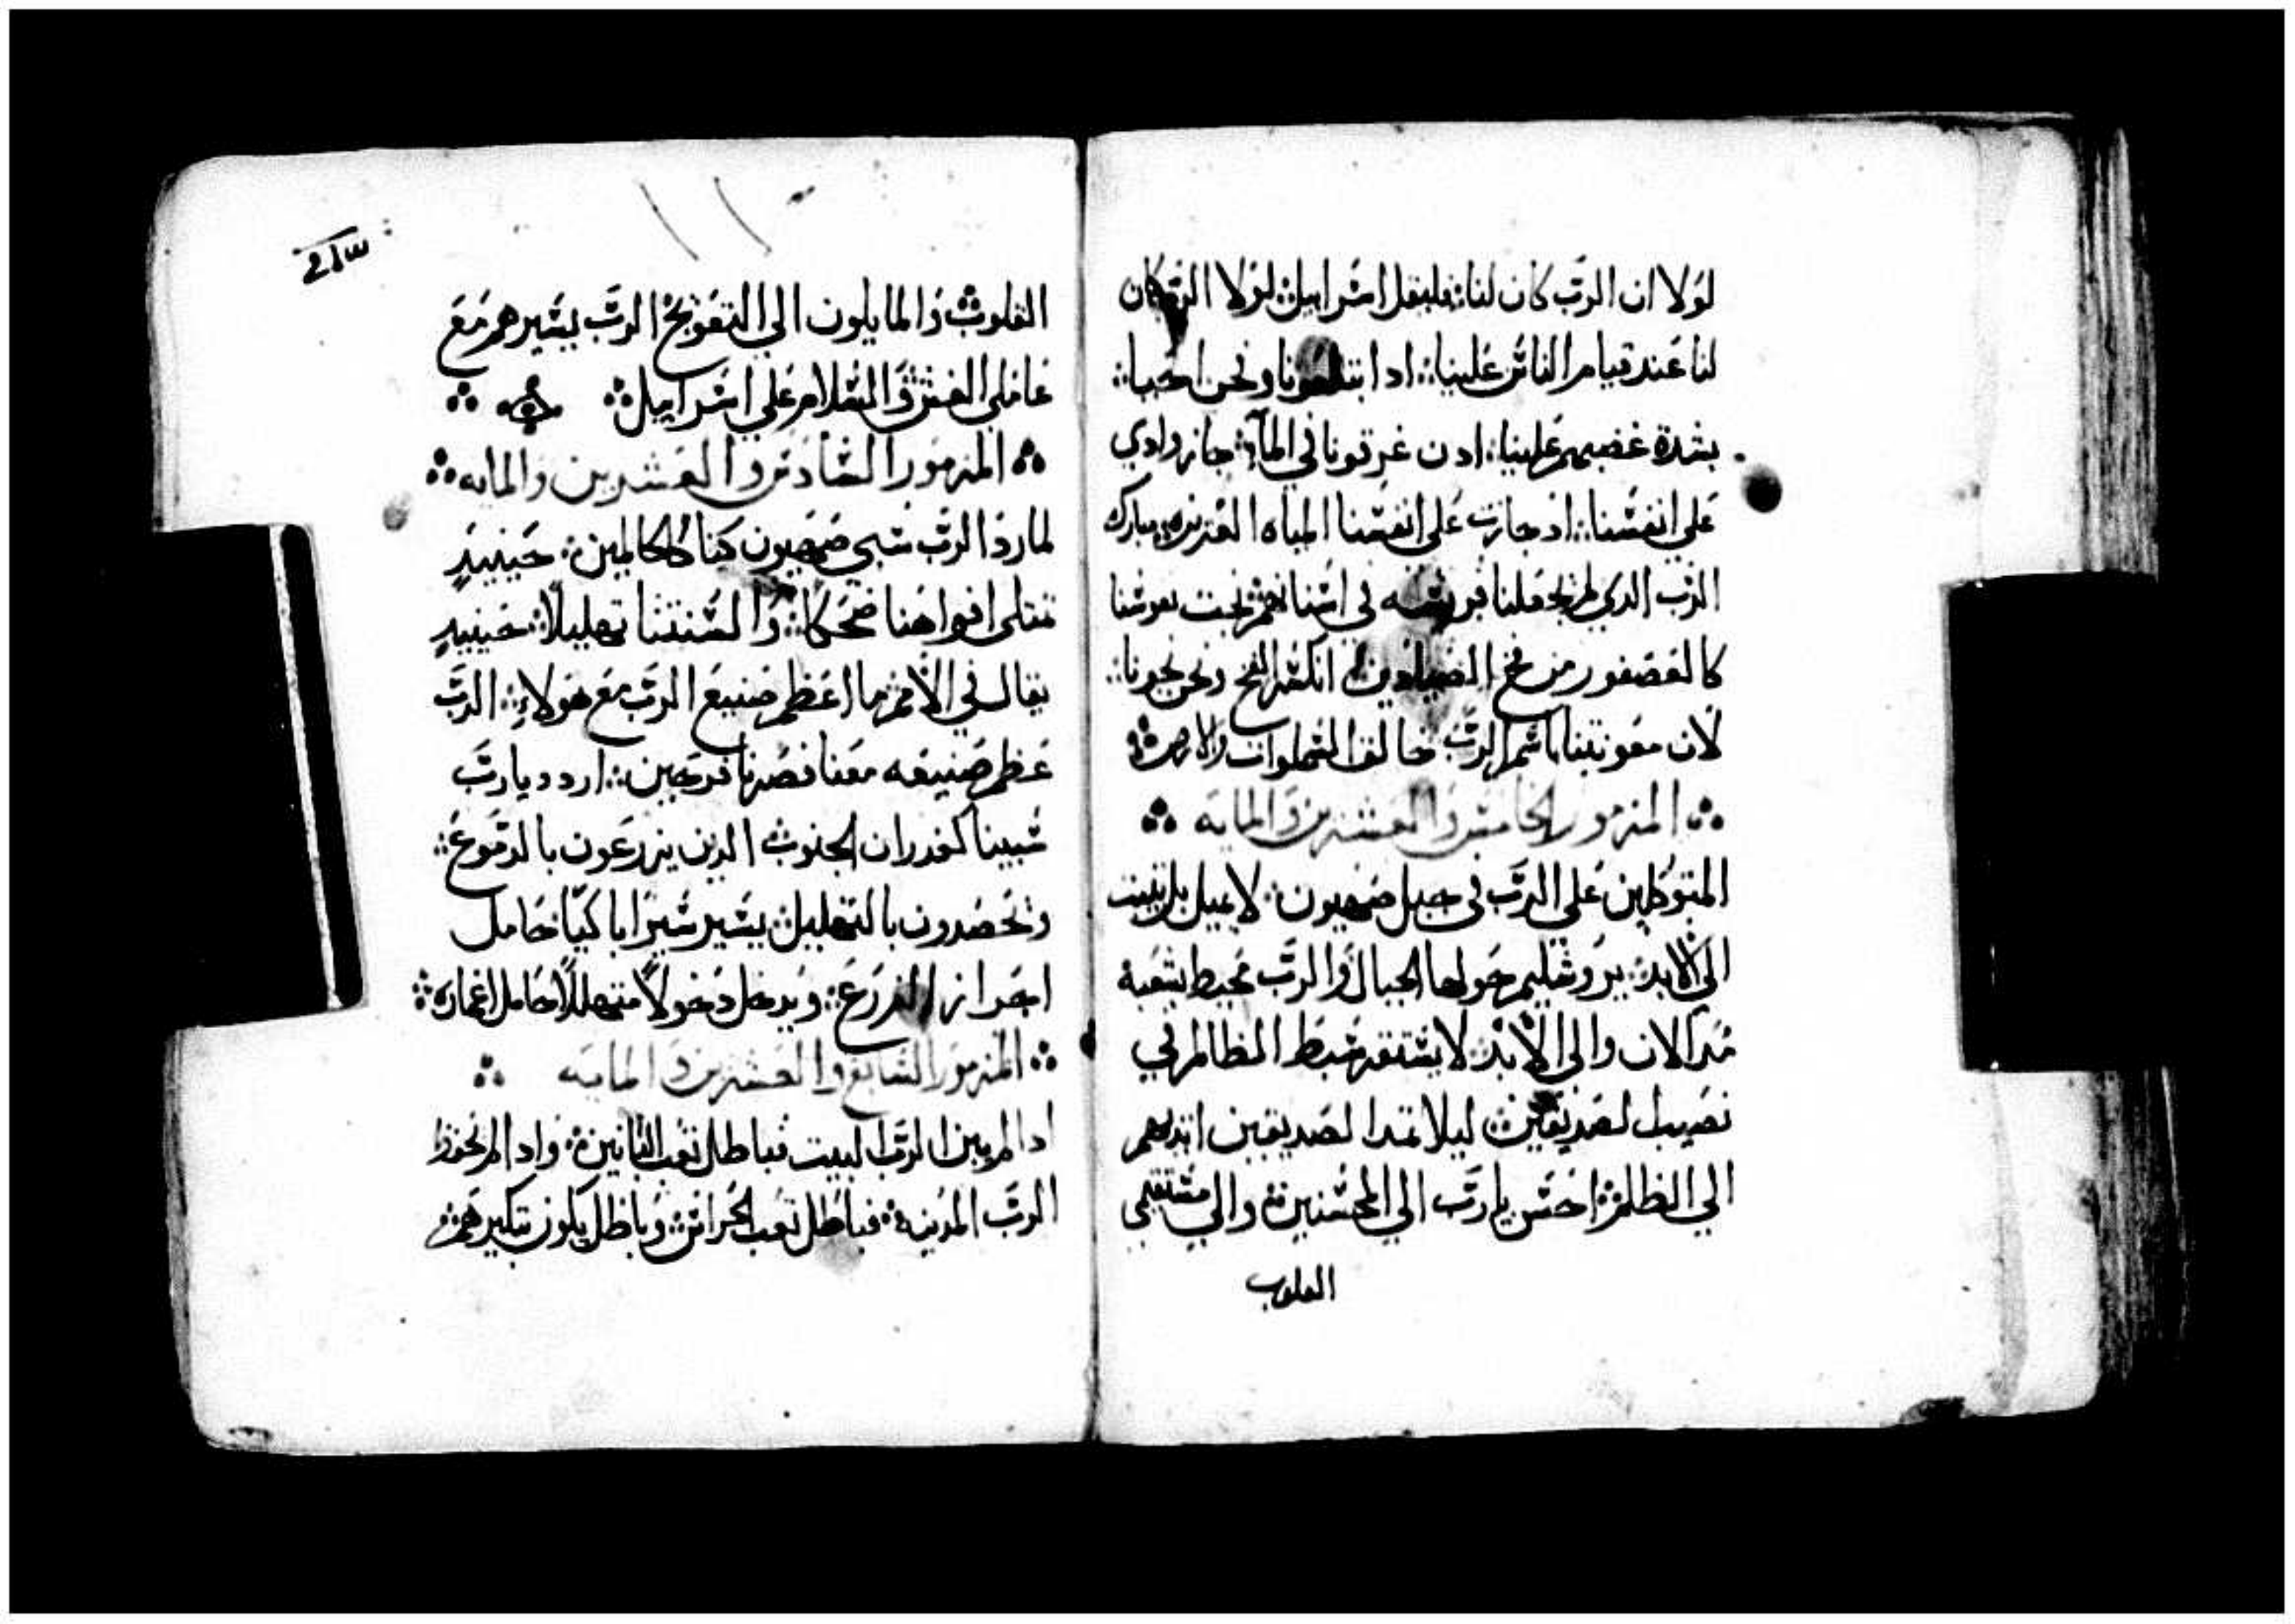 لولا ان الرب كان لنا؛ فليقل اسرائيل؛ لولا الرب كان
لنا عند قيام الناس علينا؛ ادا ابتلعونا ونحن احيا؛
بشدة غضبهم علينا؛ ادن غرقونا في المآء؛ جاز وادي
علي انفسنا؛ اد جازت علي انفسنا المياه العزيزه؛ مبارك
الرب الدي لم يجعلنا فريسه لي اسنانهم؛ نجت نفوسنا
كالعصفور من فخ الصيادين؛ انكسر الفخ ونحن نجونا؛
لان معونتنا باسم الرب خالق السماوات والارض؛
المزمور الخامس والعشرين والمايه
المتوكلين علي الرب في جبل صهيون؛ لا يميل بل يثبت
الي الابد؛ يروشليم حولها الجبال والرب محيط بشعبه
مند الان والي الابد؛ لا يستقر ضبط الظالم لي
نصيب الصديقين؛ ليلا تمد الصديقين ايديهم
الي الظلم؛ احسن يا رب الي المحسنين؛ والي مستقيمي
القلوب
القلوب والمايلون الي التعويج الرب يسيرهم مع
عاملي الغش والسلام علي اسرائيل؛
المزمور السادس والعشرين والمايه
لما رد الرب سبي صهيون كنا كالحالمين؛ حينيدٍ
تمتلي افواهنا ضحكا؛ والسنتنا تهليلا؛ حينيدٍ
يقال في الامم ما اعظم صنيع الرب مع هولاء؛ الرب
عظم صنيعه معنا فصرنا فرحين؛ اردد يا رب
سبينا كغدران الجنوب الدين يزرعون بالدموع؛
وتحصدون بالتهليل؛ يسير سيرا باكيا حامل
اجراز الزرع؛ ويدخل دخولا متهللا حامل اغماره؛
المزمور السابع والعشرين والمايه
ادا لم يبن الرب البيت فباطل تعب البانين؛ وادا لم يحفظ
الرب المدينه؛ فباطل تعب الحراس؛ وباطل يكون تبكيرهم؛